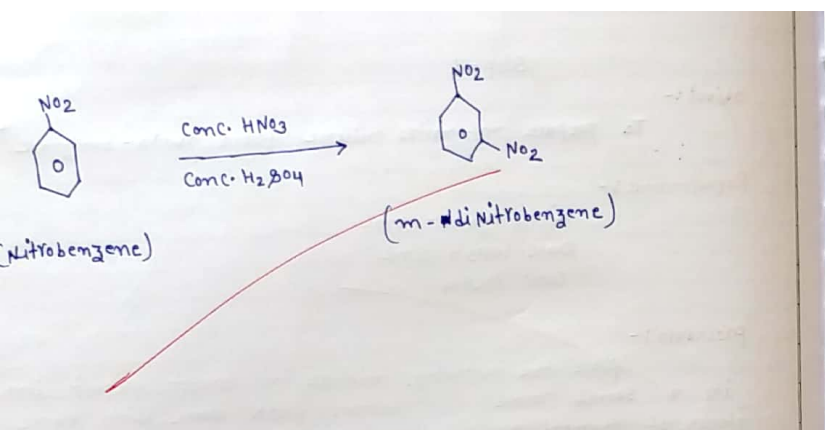 NO2
NO2
Conc. HNO3
Conc. H2SO4
NO2
(m-diNitrobenzene)
(Nitrobenzene)